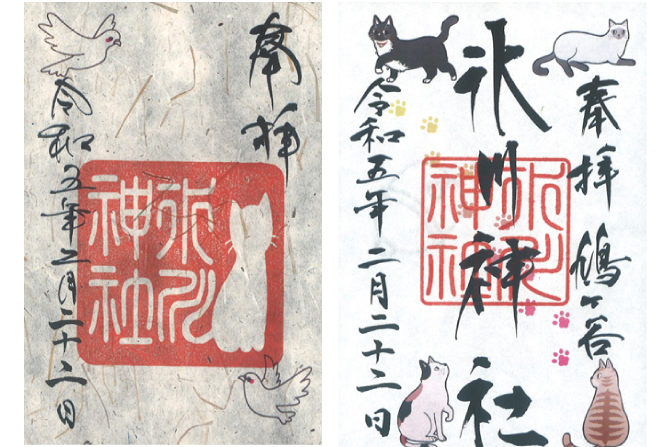 奉拝
氷川神社
令和五年二月二十二日
奉拝 鳩ヶ谷
氷川神社
氷川神社
令和五年二月二十二日